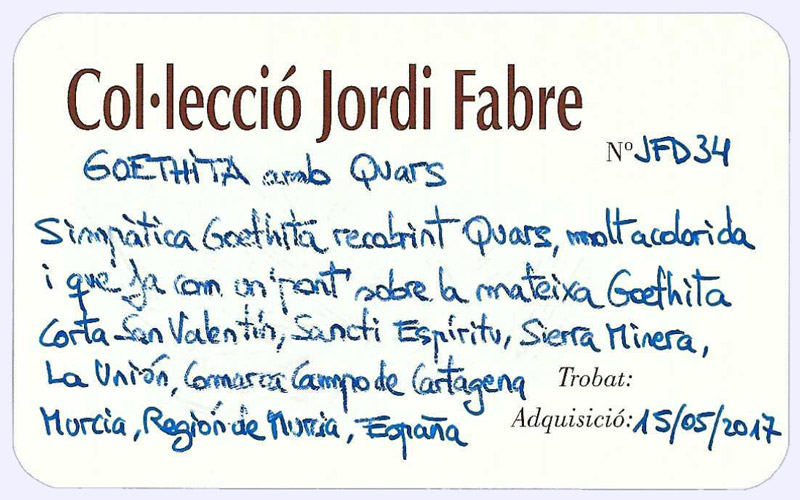 Col·lecció Jordi Fabre
Nº JFD34
GOETHITA amb Quars
Simpàtica Goethita recobrint Quars, molt acolorida
i que fa com un "pont" sobre la mateixa Goethita
Corta San Valentín, Sancti Espíritu, Sierra Minera,
La Unión, Comarca Campo de Cartagena
Trobat:
Murcia, Región de Murcia, España
Adquisició: 15/05/2017